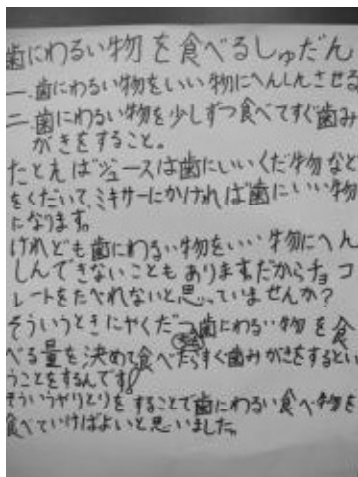 歯にわるい物を食べるしゅだん
一.歯にわるい物をいい物にへんしんさせる
二.歯にわるい物を少しずつ食べてすぐ歯み
がきをすること。
たとえばジュースは歯にいいくだ物など
をくだいて、ミキサーにかければ歯にいい物
になります。
けれども歯にわるい物をいい物にへん
しんできないこともあります。だからチョコ
レートをたべれないと思っていませんか?
そういうときにやくだつ歯にわるい物を食
べる量を決めて食べたらすぐ歯みがきをするとい
うことをするんです!
そういうやりとりをすることで歯にわるい食べ物を
食べていけばよいと思いました。